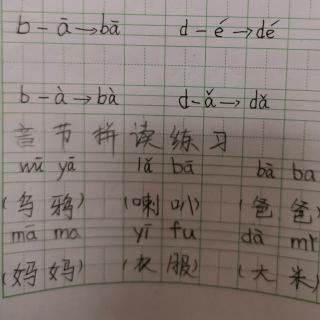 b-ā→bā d-é→dé
b-à→bà d-ǎ→dǎ
音节拼读练习
wū yā lǎ bā bà ba
(乌鸦) (喇叭) (爸爸)
mā ma yī fu dà mǐ
(妈妈) (衣服) (大米)